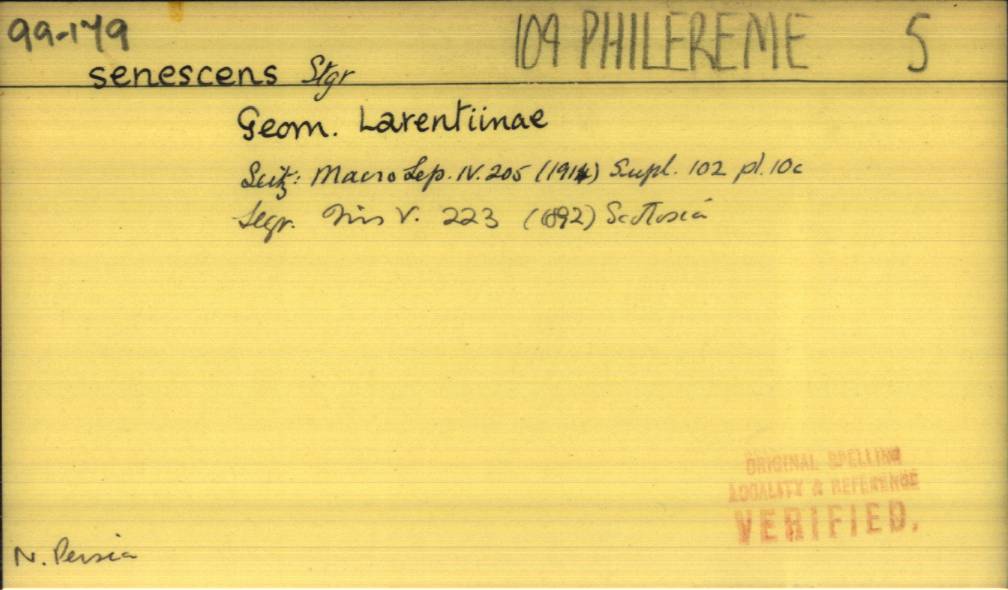 99-179 109 PHILEREME 5
senescens Stgr
Geom. Larentiinae
Seitz: Macro Lep. IV. 205 (1914) Supl. 102 pl. 10c
Stgr. Iris V. 223 (1892) Scotosia
ORIGINAL SPELLING
LOCALITY & REFERENCE
VERIFIED.
N. Persia